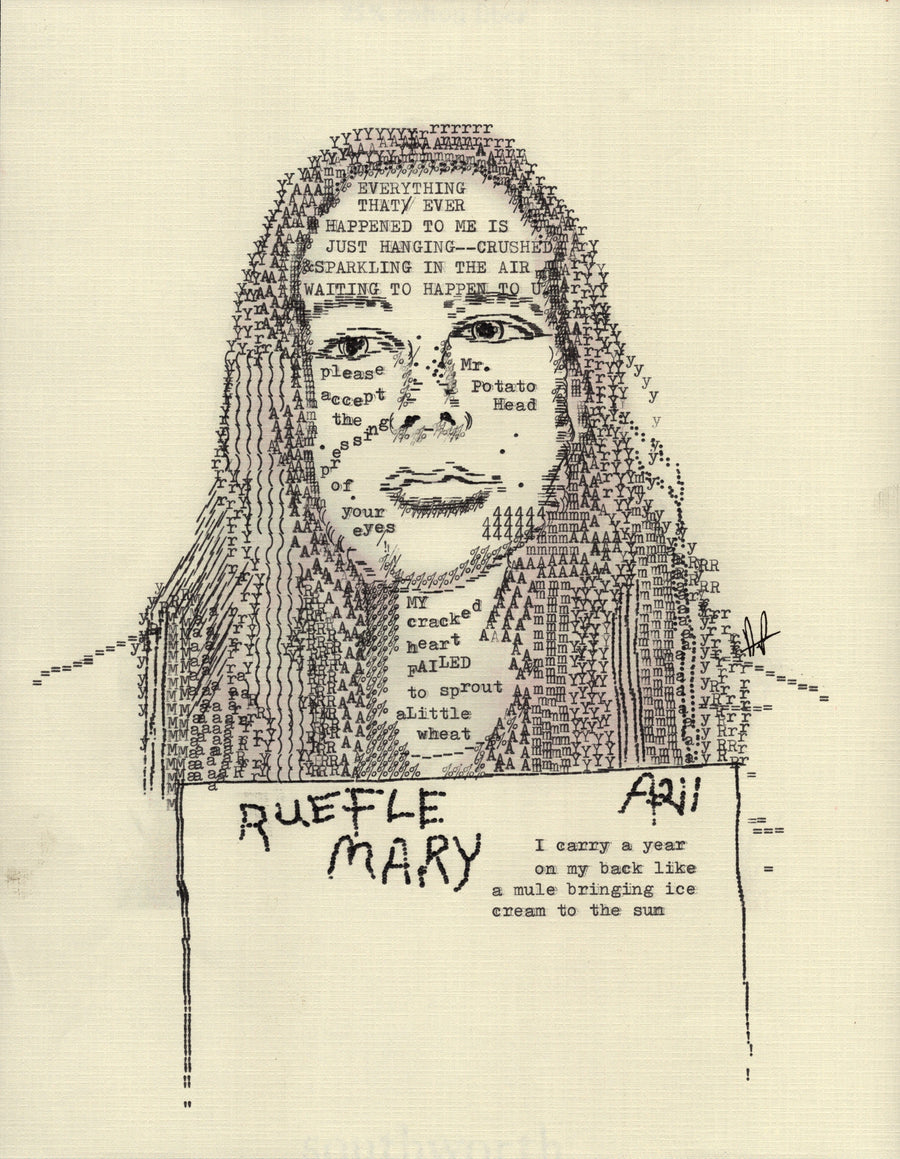 EVERYTHING
THATY EVER
HAPPENED TO ME IS
JUST HANGING--CRUSHED
&SPARKLING IN THE AIR
WAITING TO HAPPEN TO U.
please
accept
the
pressing
of
your
eyes
Mr.
Potato
Head
MY
cracked
heart
FAILED
to sprout
aLittle
wheat
RUEFLE
MARY
I carry a year
on my back like
a mule bringing ice
cream to the sun
southworth